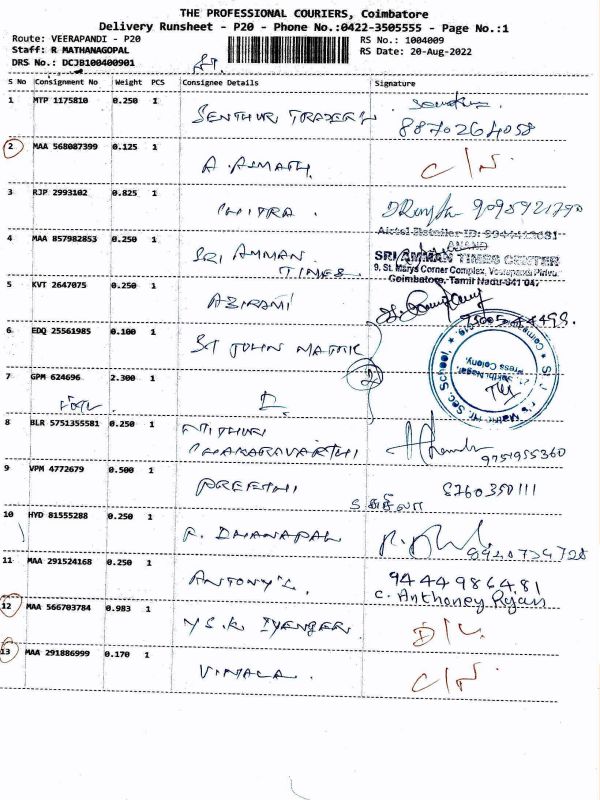 THE PROFESSIONAL COURIERS, Coimbatore
Delivery Runsheet - P20 - Phone No.:0422-3505555 - Page No.:1
Route: VEERAPANDI - P20 RS No.: 1004009
Staff: R MATHANAGOPAL RS Date: 20-Aug-2022
DRS No.: DCJB100400901
S No Consignment No Weight PCS Consignee Details Signature
1 MTP 1175810 0.250 1 SENTHUR TRADERS
8870264058
2 MAA 568087399 0.125 1 C/N.
3 RJP 2993102 0.825 1 CHITRA. 9095921790
Airtel Retailer ID: 
ANAND
4 MAA 857982853 0.250 1 SRI AMMAN TIMES SRI AMMAN TIMES CENTER
9, St. Marys Corner Complex, Veerapandi Pirivu,
Coimbatore, Tamil Nadu-641 047
5 KVT 2647075 0.250 1 ABIRAMI
6 EDQ 25561985 0.100 1 ST JOHN MATRIC
Matric Hr. Sec. School,
Sakthi Nagar,
Press Colony,
7 GPM 624696 2.300 1
8 BLR 5751355581 0.250 1 MITHURI CHAKARAVARTHI 9751955360
9 VPM 4772679 0.500 1 PREETHI 8760350111
10 HYD 81555288 0.250 1 R. DHANAPAL
11 MAA 291524168 0.250 1 ANTONY 9444986481
C. Anthoney Rajan
12 MAA 566703784 0.983 1 Y S.K IYENGER D/L.
13 MAA 291886999 0.170 1 VIMALA. C/N.